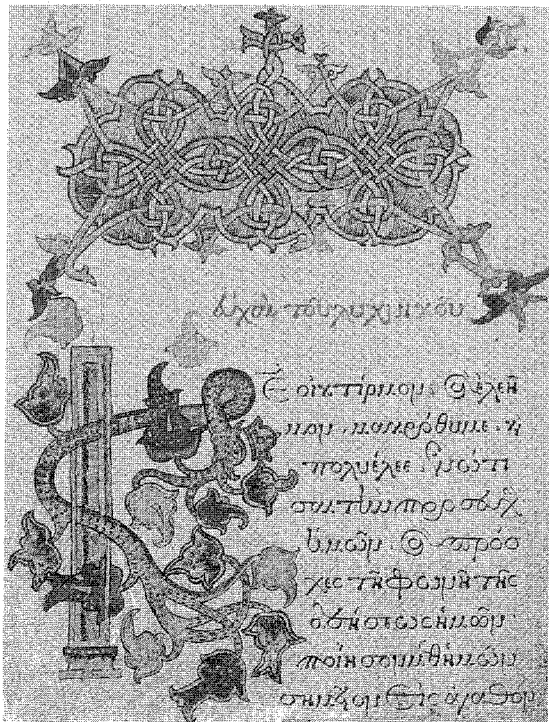 εὐχαὶ τοῦ λυχνικοῦ
ΚΕ οἰκτίρμον, ϗ ἐλεῆ
μον, μακρόθυμε, ϗ
πολυέλεε, ἐνώτι
σαι τὴν προσευχ
ἡμῶν ϗ πρόσ
χες τῇ φωνῇ τῆς
δεήσεως ἡμῶν
ποίησον μεθ ἡμῶν
σημεῖον εἰς ἀγαθὸν